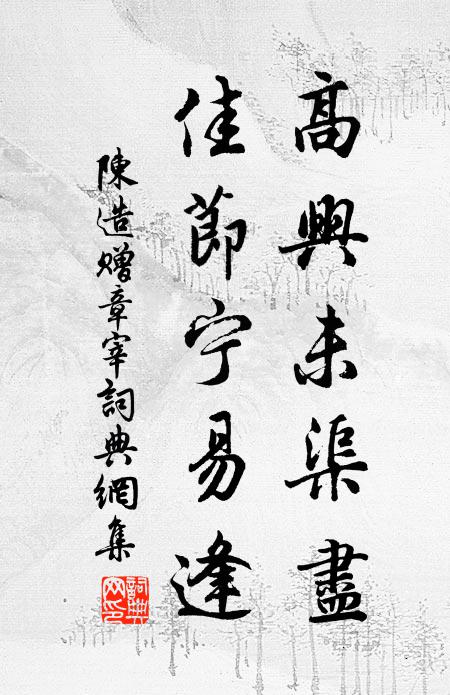 高興未渠盡
佳節宁易逢
陳造贈章宰詞典網集